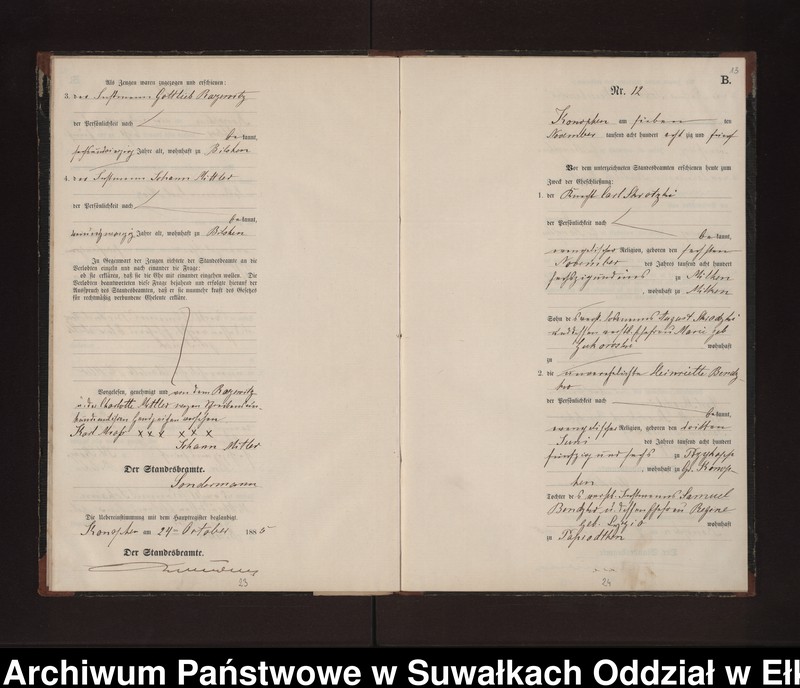 Als Zeugen waren zugezogen und erschienen:
3. der Instmann Gottlieb Razewitz
der Persönlichkeit nach
be kannt,
Jahre alt, wohnhaft zu Bilshen
4. der Instmann Johann Mittler
der Persönlichkeit nach
be kannt,
Jahre alt, wohnhaft zu Bilshen
In Gegenwart der Zeugen richtete der Standesbeamte an die
Verlobten einzeln und nach einander die Frage:
ob sie erklären, daß sie die Ehe mit einander eingehen wollen. Die
Verlobten beantworteten diese Frage bejahend und erfolgte hierauf der
Ausspruch des Standesbeamten, daß er sie nunmehr kraft des Gesetzes
für rechtmäßig verbundene Eheleute erkläre.
Vorgelesen, genehmigt und von dem Razewitz
u. der Charlotte Mittler wegen
Handzeichen versehen
Karl xxx xxx
Johann Mittler
Der Standesbeamte.
Sondermann
Die Uebereinstimmung mit dem Hauptregister beglaubigt.
Konopken am 24ten October 1885
Der Standesbeamte.
23
13
B.
Nr. 12
Konopken am sieben ten
November tausend acht hundert acht zig und fünf
Vor dem unterzeichneten Standesbeamten erschienen heute zum
Zweck der Eheschließung:
1. der Knecht Carl Skrotzki
der Persönlichkeit nach
be kannt,
evangelischer Religion, geboren den sechsten
November des Jahres tausend acht hundert
sechszig und eins zu Milken
, wohnhaft zu Milken
Sohn des verst. Losmanns August Skrodzki
und dessen verst. Ehefrau Marie geb
wohnhaft
zu
2. die unverehelichte Heinriette
der Persönlichkeit nach
be kannt,
evangelischer Religion, geboren den dritten
Juni des Jahres tausend acht hundert
fünfzig und sechs zu
, wohnhaft zu Gr. Konop-
ken
Tochter des verst. Instmanns Samuel
u dessen Ehefrau Regine
geb. wohnhaft
zu
24
Archiwum Państwowe w Suwałkach Oddział w Ełk